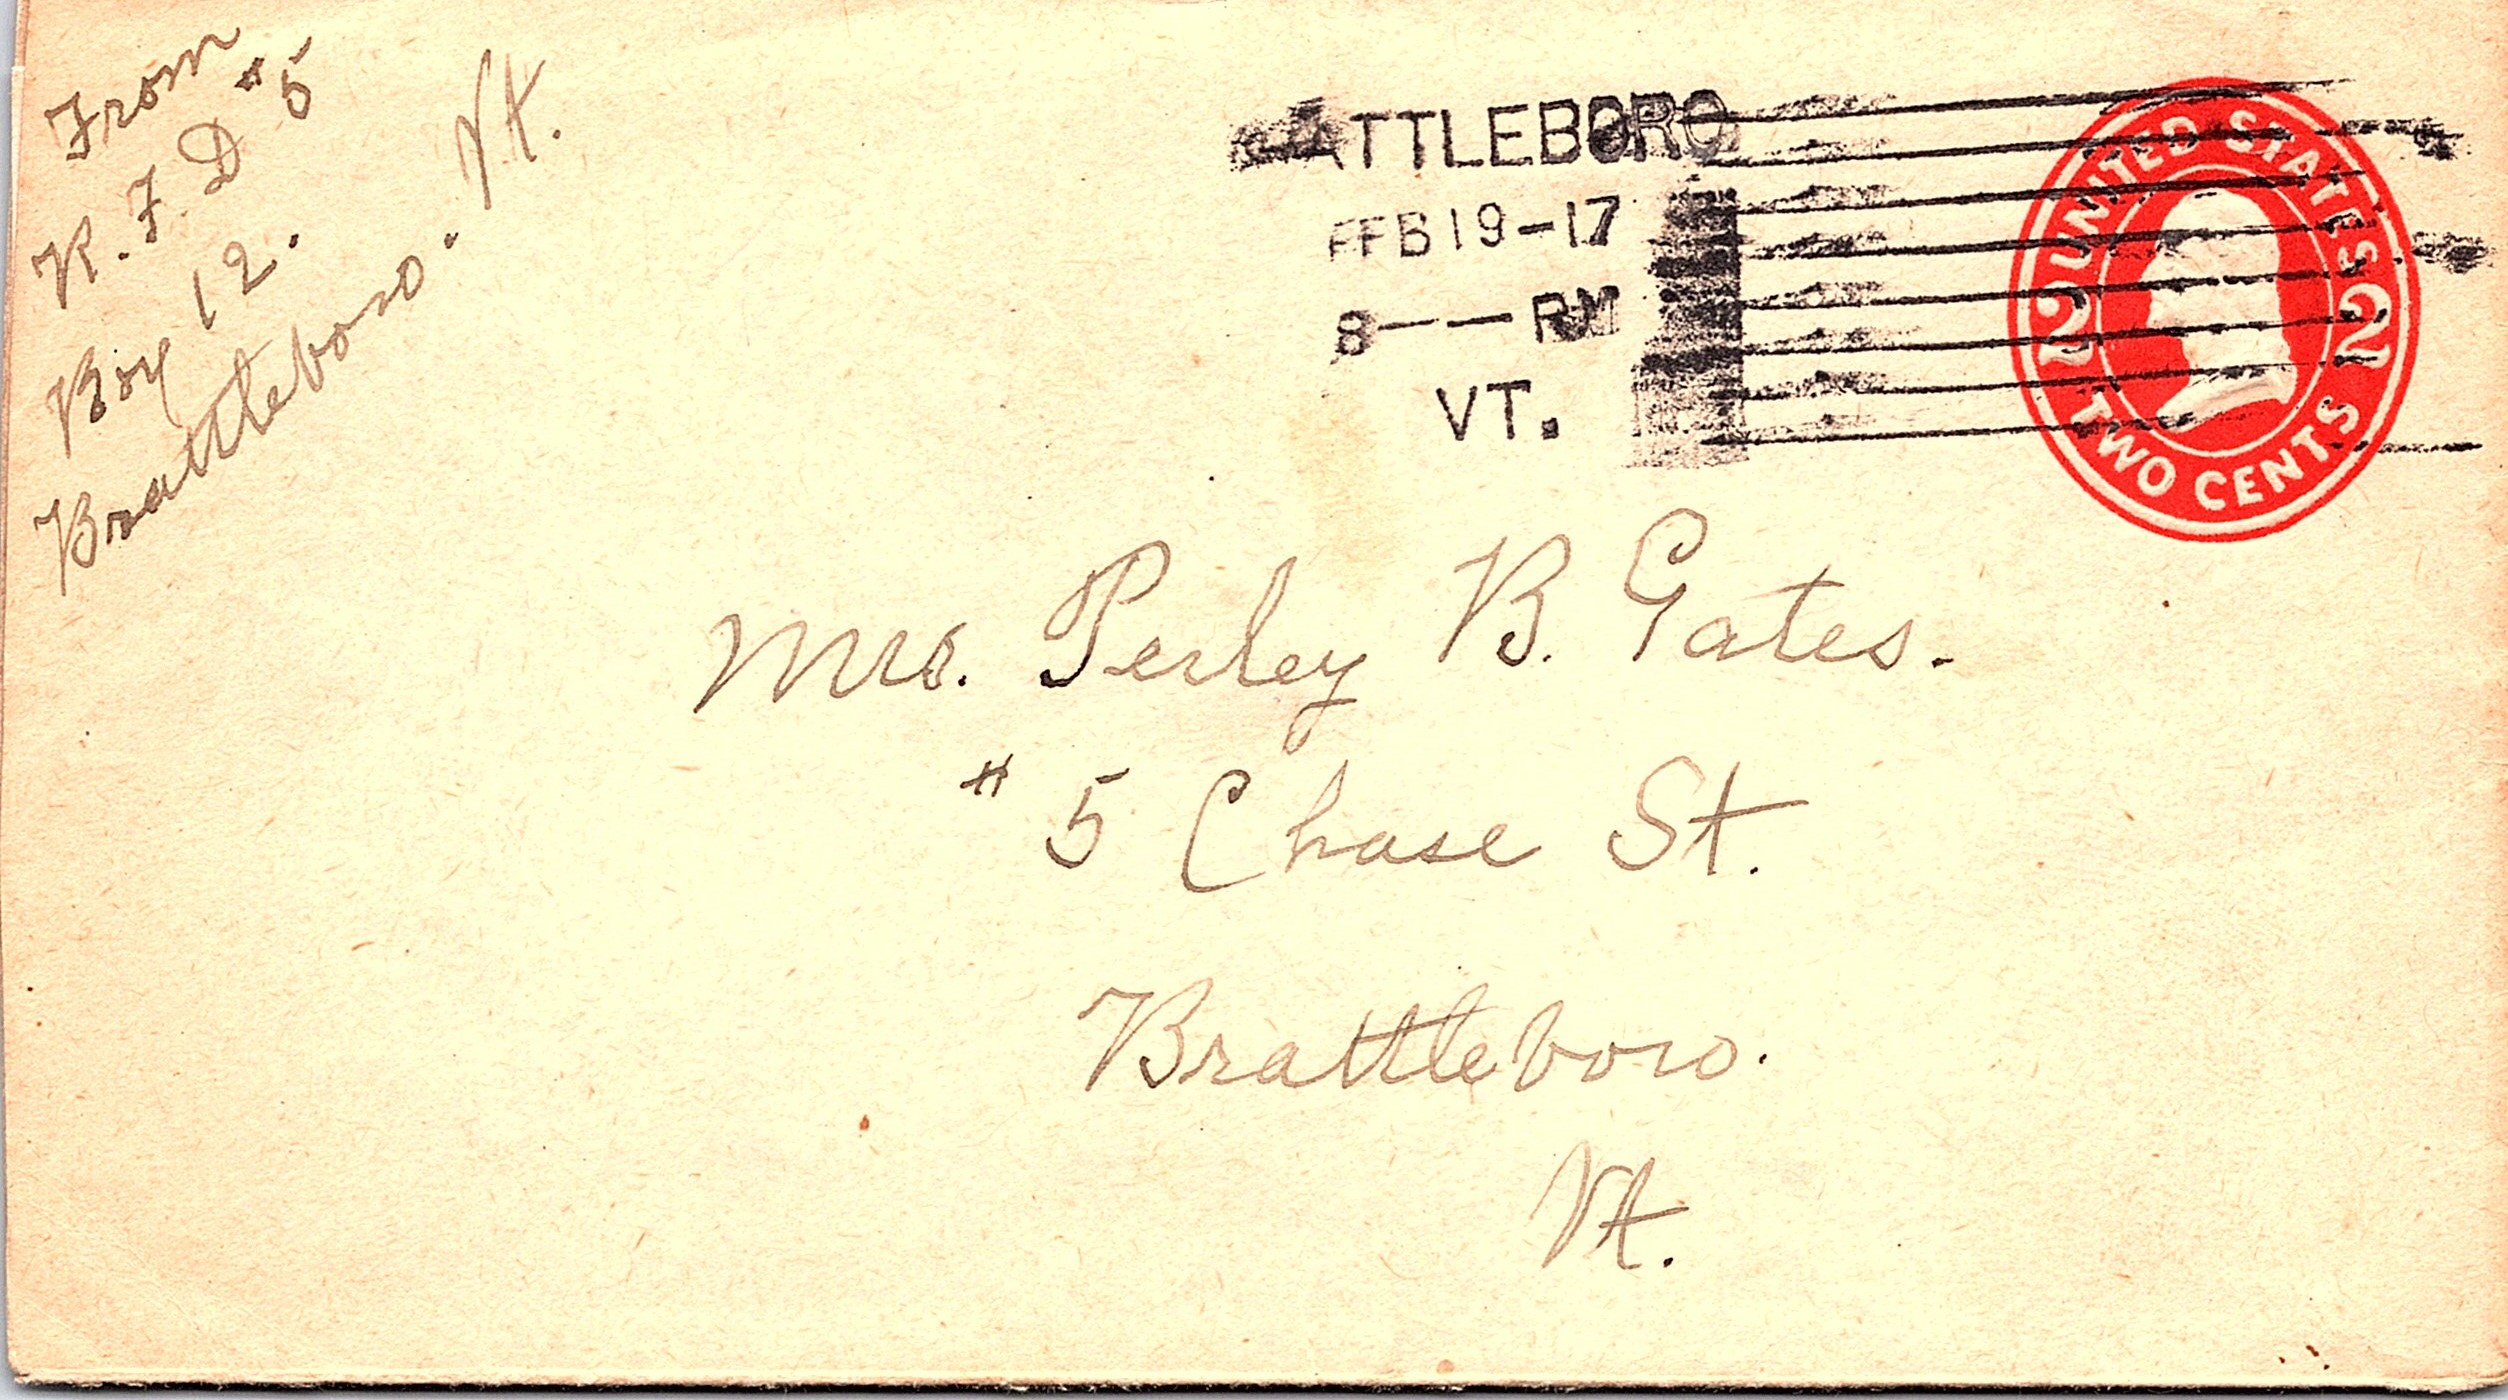 From
R.F.D #5
Box 12.
Brattleboro. Vt.
ATTLEBORO
FEB 19-17
8 -- PM
VT.
UNITED STATES
2 2
TWO CENTS
Mrs. Perley B. Gates.
# 5 Chase St.
Brattleboro.
Vt.